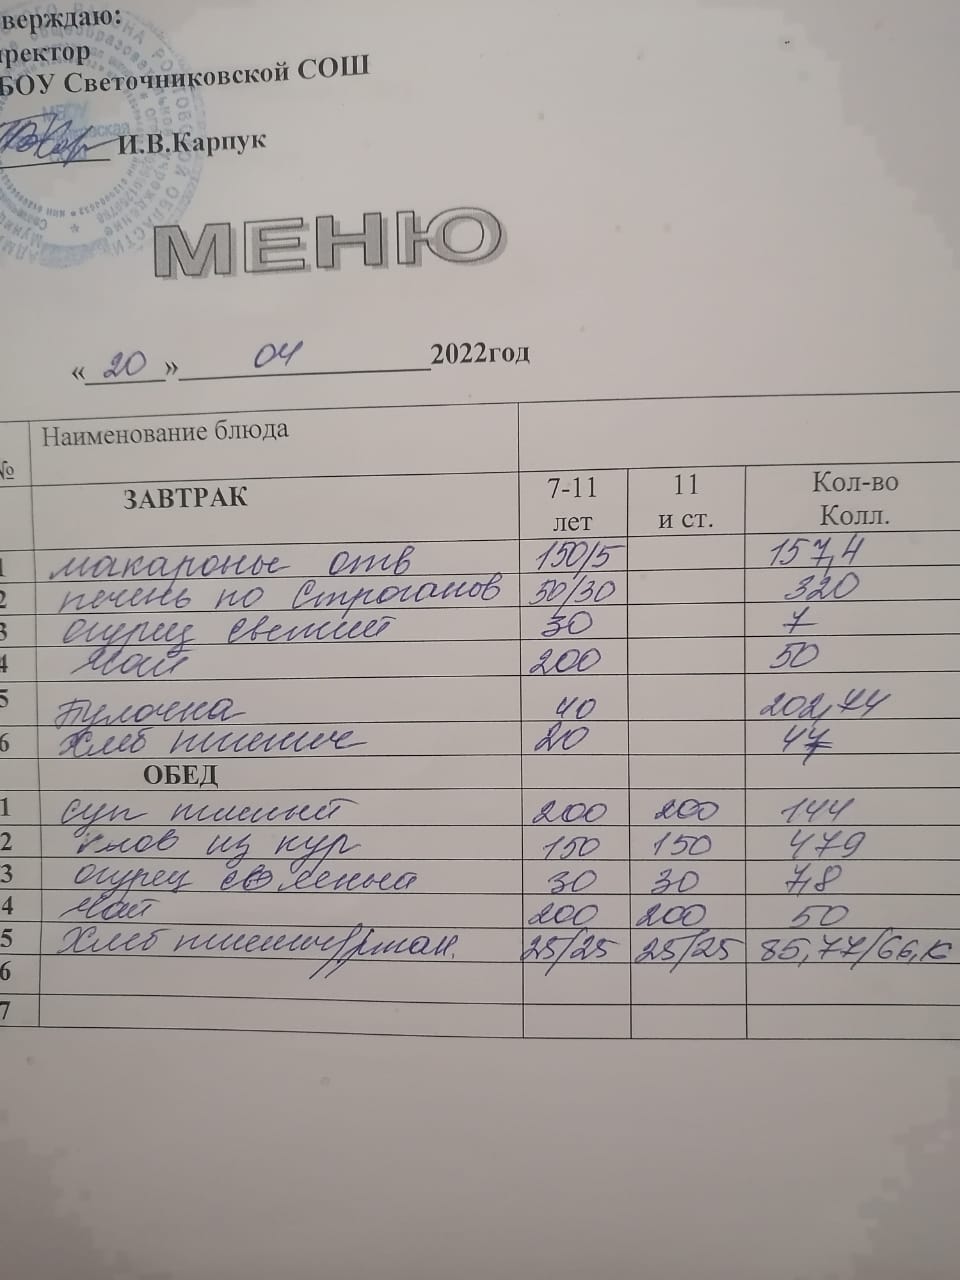 верждаю:
иректор
БОУ Светочниковской СОШ
И.В.Карпук
МЕНЮ
«20» 04 2022год
№ Наименование блюда
ЗАВТРАК 7-11 лет 11 и ст. Кол-во Колл.
1 макароны отв 150/5 157,4
2 печень по Строганов 50/30 320
3 огурец свежий 30 7
4 Чай 200 50
5 Булочка 40 202,44
6 Хлеб пшенич 20 47
ОБЕД
1 суп пшеный 200 200 144
2 плов из кур 150 150 479
3 огурец соленый 30 30 7,8
4 Чай 200 200 50
5 Хлеб пшенич/ржан. 25/25 25/25 85,77/66,
6
7